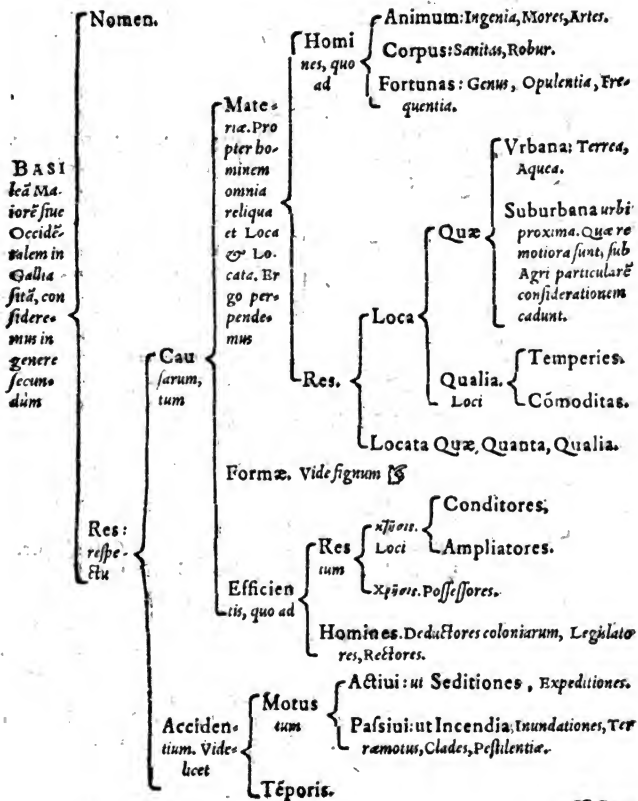 BASI
leā Ma-
iorē siue
Occidē-
talem in
Gallia
sitā, con
sidere-
mus in
genere
secun-
dùm
Nomen.
Res:
respe-
ctu
Cau
sarum,
tum
Mate-
riæ. Pro
pter ho-
minem
omnia
reliqua
et Loca
& Lo-
cata. Er
go per-
pende-
mus
Homi
nes, quo
ad
Animum: Ingenia, Mores, Artes.
Corpus: Sanitas, Robur.
Fortunas: Genus, Opulentia, Fre-
quentia.
Res.
Loca
Quæ
Vrbana: Terrea,
Aquea.
Suburbana urbi
proxima. Quæ re
motiora sunt, sub
Agri particularē
considerationem
cadunt.
Qualia.
Loci
Temperies.
Cōmoditas.
Locata Quæ, Quanta, Qualia.
Formæ. Vide signum ☞
Efficien
tis, quo ad
Res
tum
κτῆσις.
Loci
Conditores,
Ampliatores.
Χρῆσις. Possessores.
Homines. Deductores coloniarum, Legislato
res, Rectores.
Acciden-
tium. Vide-
licet
Motus
tum
Actiui: ut Seditiones, Expeditiones.
Passiui: ut Incendia, Inundationes, Ter
ræmotus, Clades, Pestilentiæ.
Tēporis.